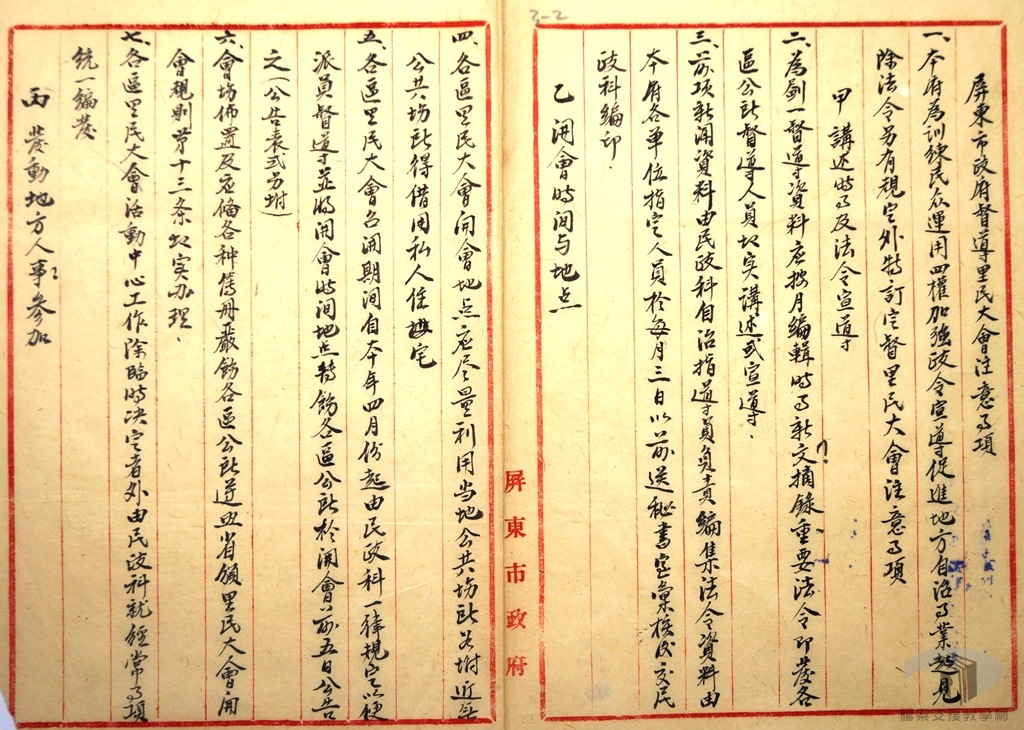 3-2
屏東市政府督導里民大會注意事項
一、本府為訓練民众運用四權加強政令宣導促進地方自治事業起見
除法令另有規定外特訂定督里民大會注意事項
甲 講述時事及法令宣導
二、為劃一督導資料應按月編輯時事新文摘錄重要法令印發各
區公所督導人員切实講述或宣導、
三、前項新闻資料由民政科自治指導員負責編集法令資料由
本府各單位指定人員於每月三日以前送秘書室彙核後交民
政科編印、
乙 開會時间与地点
四、各區里民大會開會地点应尽量利用当地公共場所若附近無
公共場所得借用私人住宅
五、各區里民大會召開期间自本年四月份起由民政科一律規定以便
派員督導並將開會時间地点轉飭各區公所於開會前五日公告
之(公告表式另附)
六、會場佈置及应備各种簿册嚴飭各區公所遵照省頒里民大會開
會規則第十三条切实办理、
七、各區里民大會活動中心工作除臨時決定者外由民政科就經常事項
統一編發
丙 發動地方人事參加
屏東市政府
檔案支援教學網